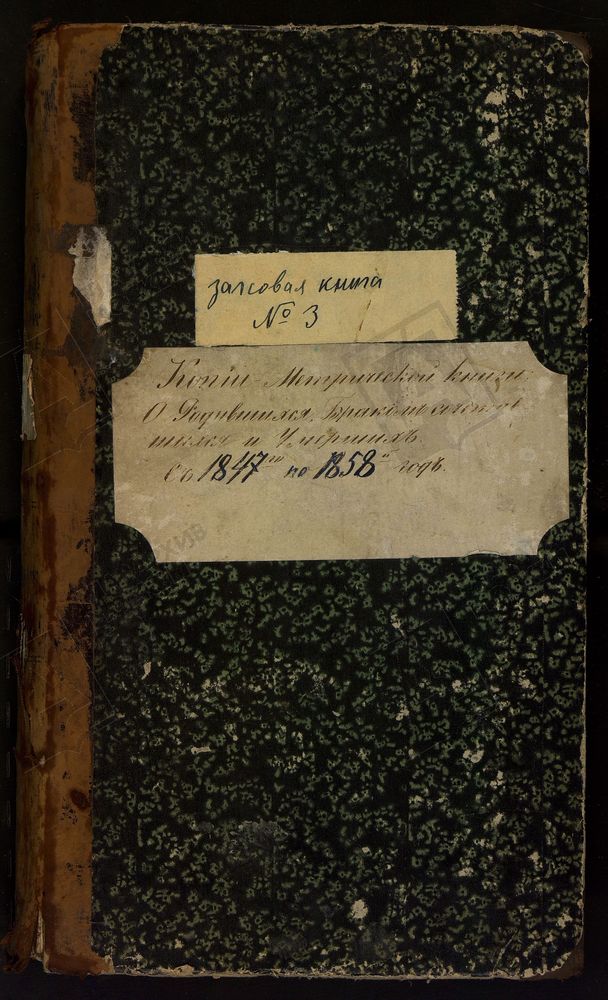 загсовая книга
№ 3
Копiи Метрической книги
О Родившихся, Бракомъ сочетав
шихся и Умершихъ.
Съ 1847го по 1858й годъ.